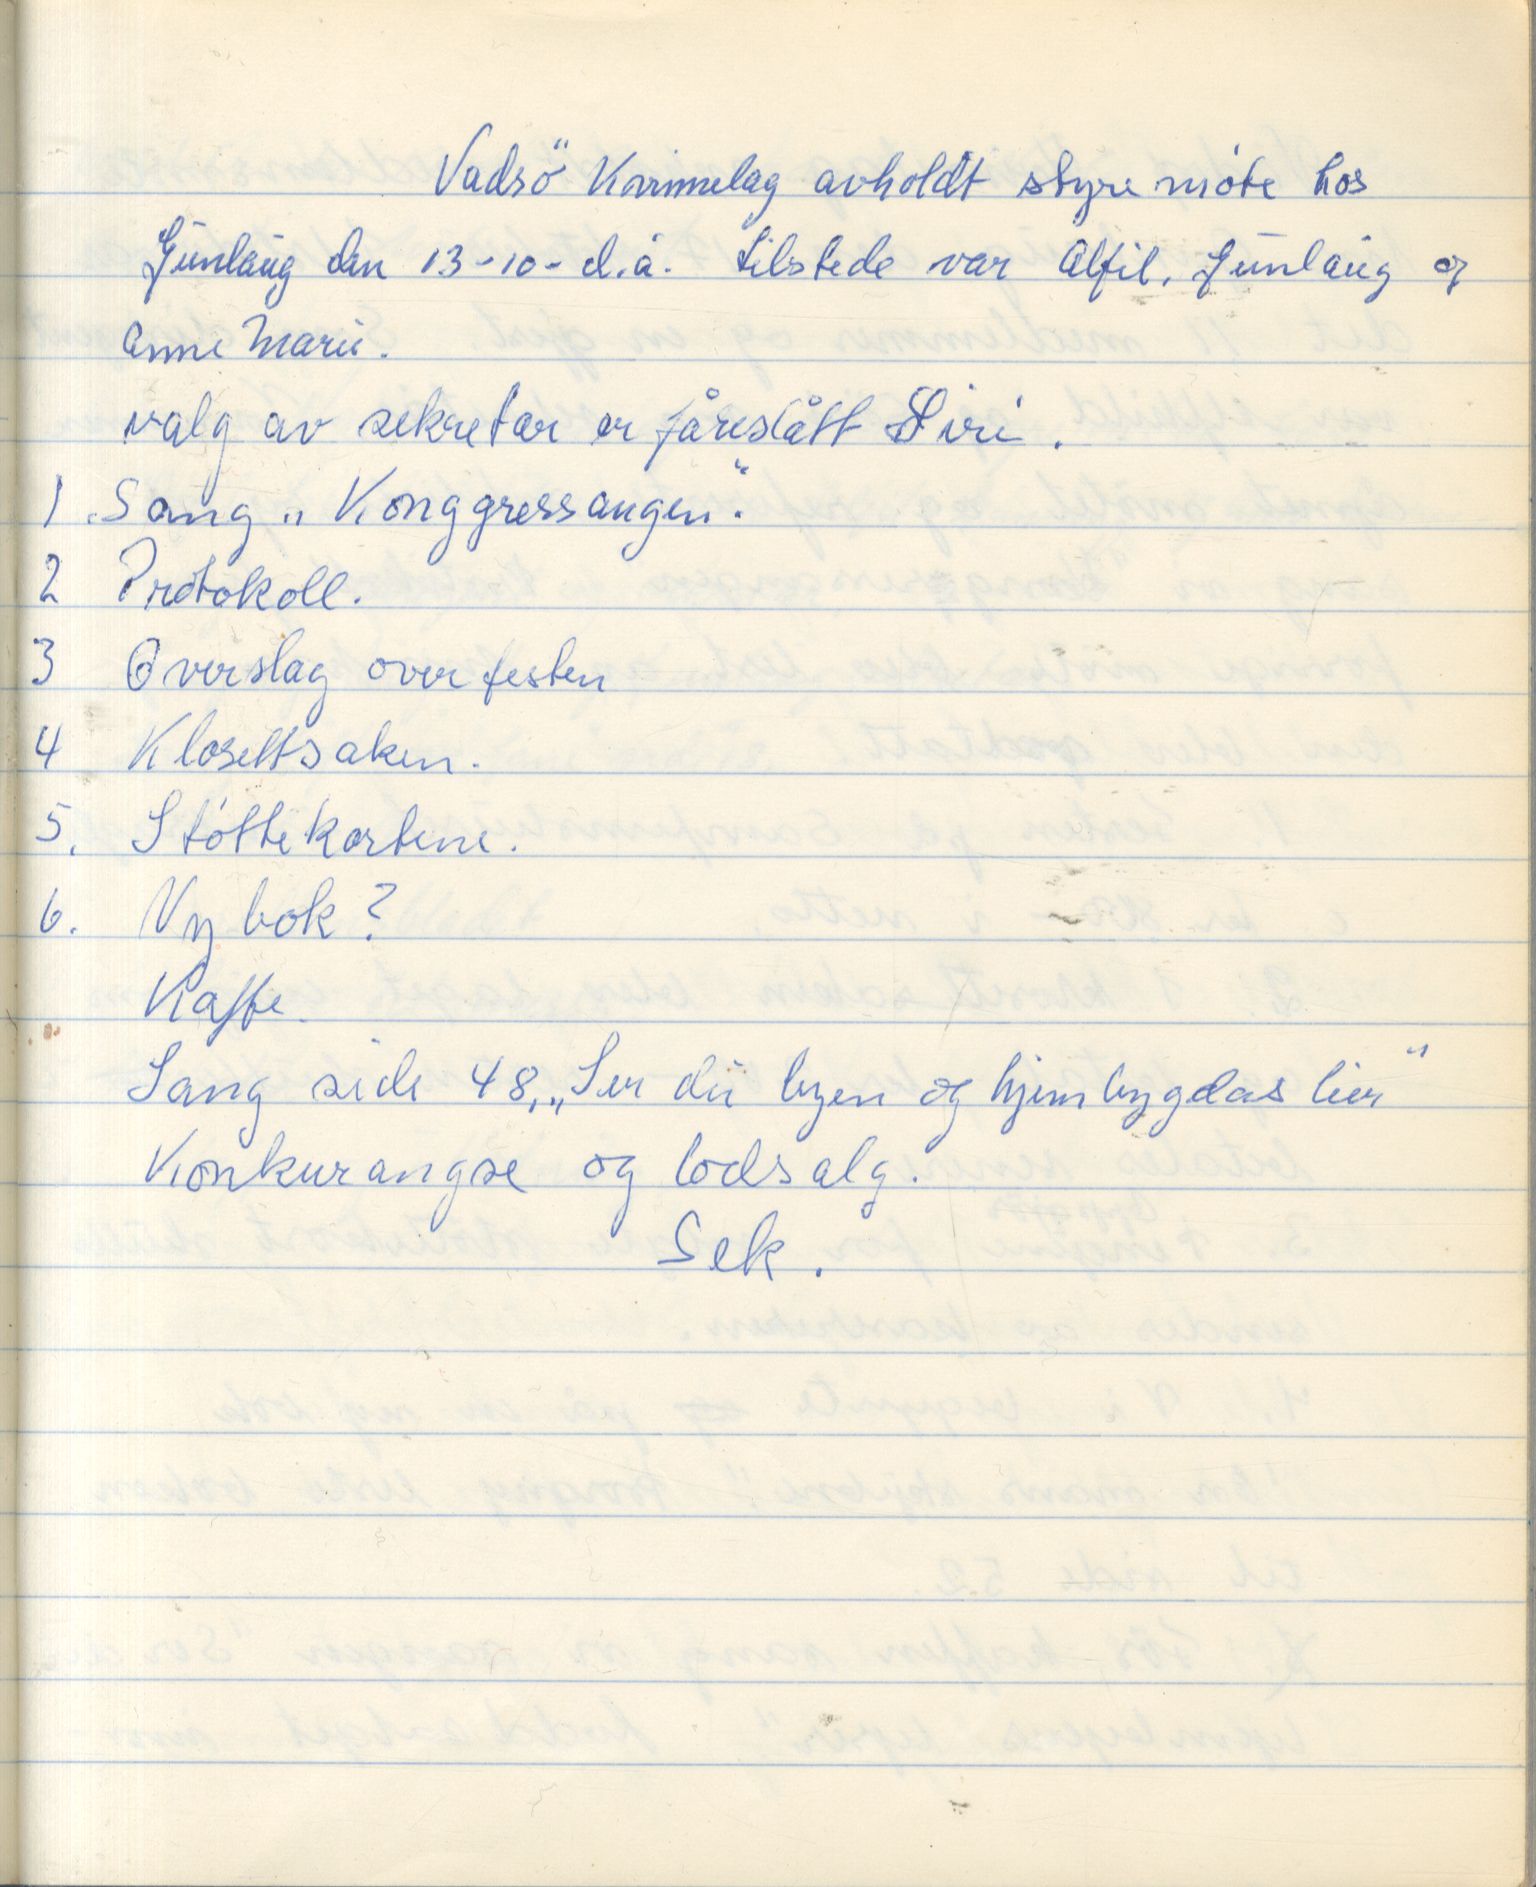 Vadsö Kvinnelag avholdt styremöte hos
Gunlaug den 13-10-d.å. tilstede var Alfil, Gunlaug og
Anne Marie.
valg av sekretær er fåreslått Siri.
1. Sang „Konggressangen".
2 Protokoll.
3 Overslag over festen
4 Klosettsaken.
5. Stöttekortene.
6. Ny bok?
Kaffe.
Sang side 48, „Ser du byen og hjembygdas lier"
Konkurangse og lodsalg.
Sek.